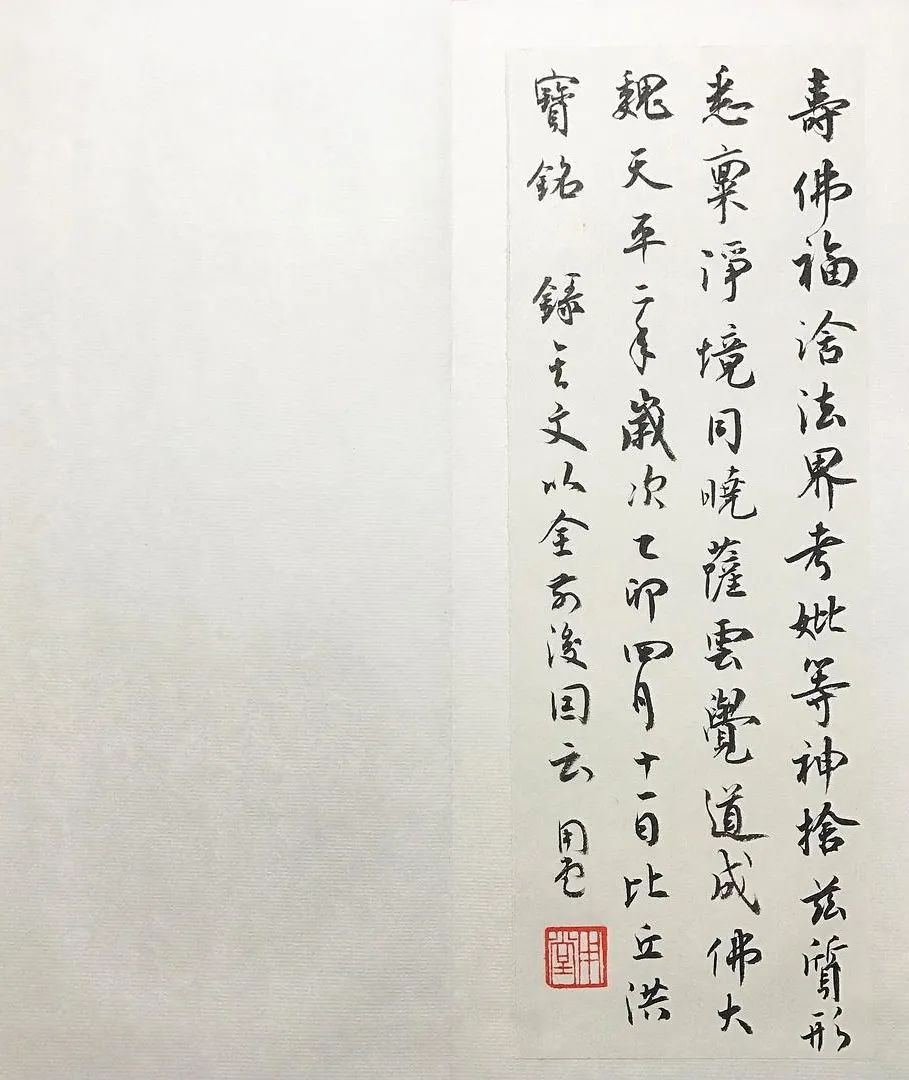 壽佛福洽法界考妣等神捨茲質形
悉稟淨境同曉薩雲覺道成佛大
魏天平二年歲次乙卯四月十一日比丘洪
寶銘 錄其文以全前後因云 用堂
用堂